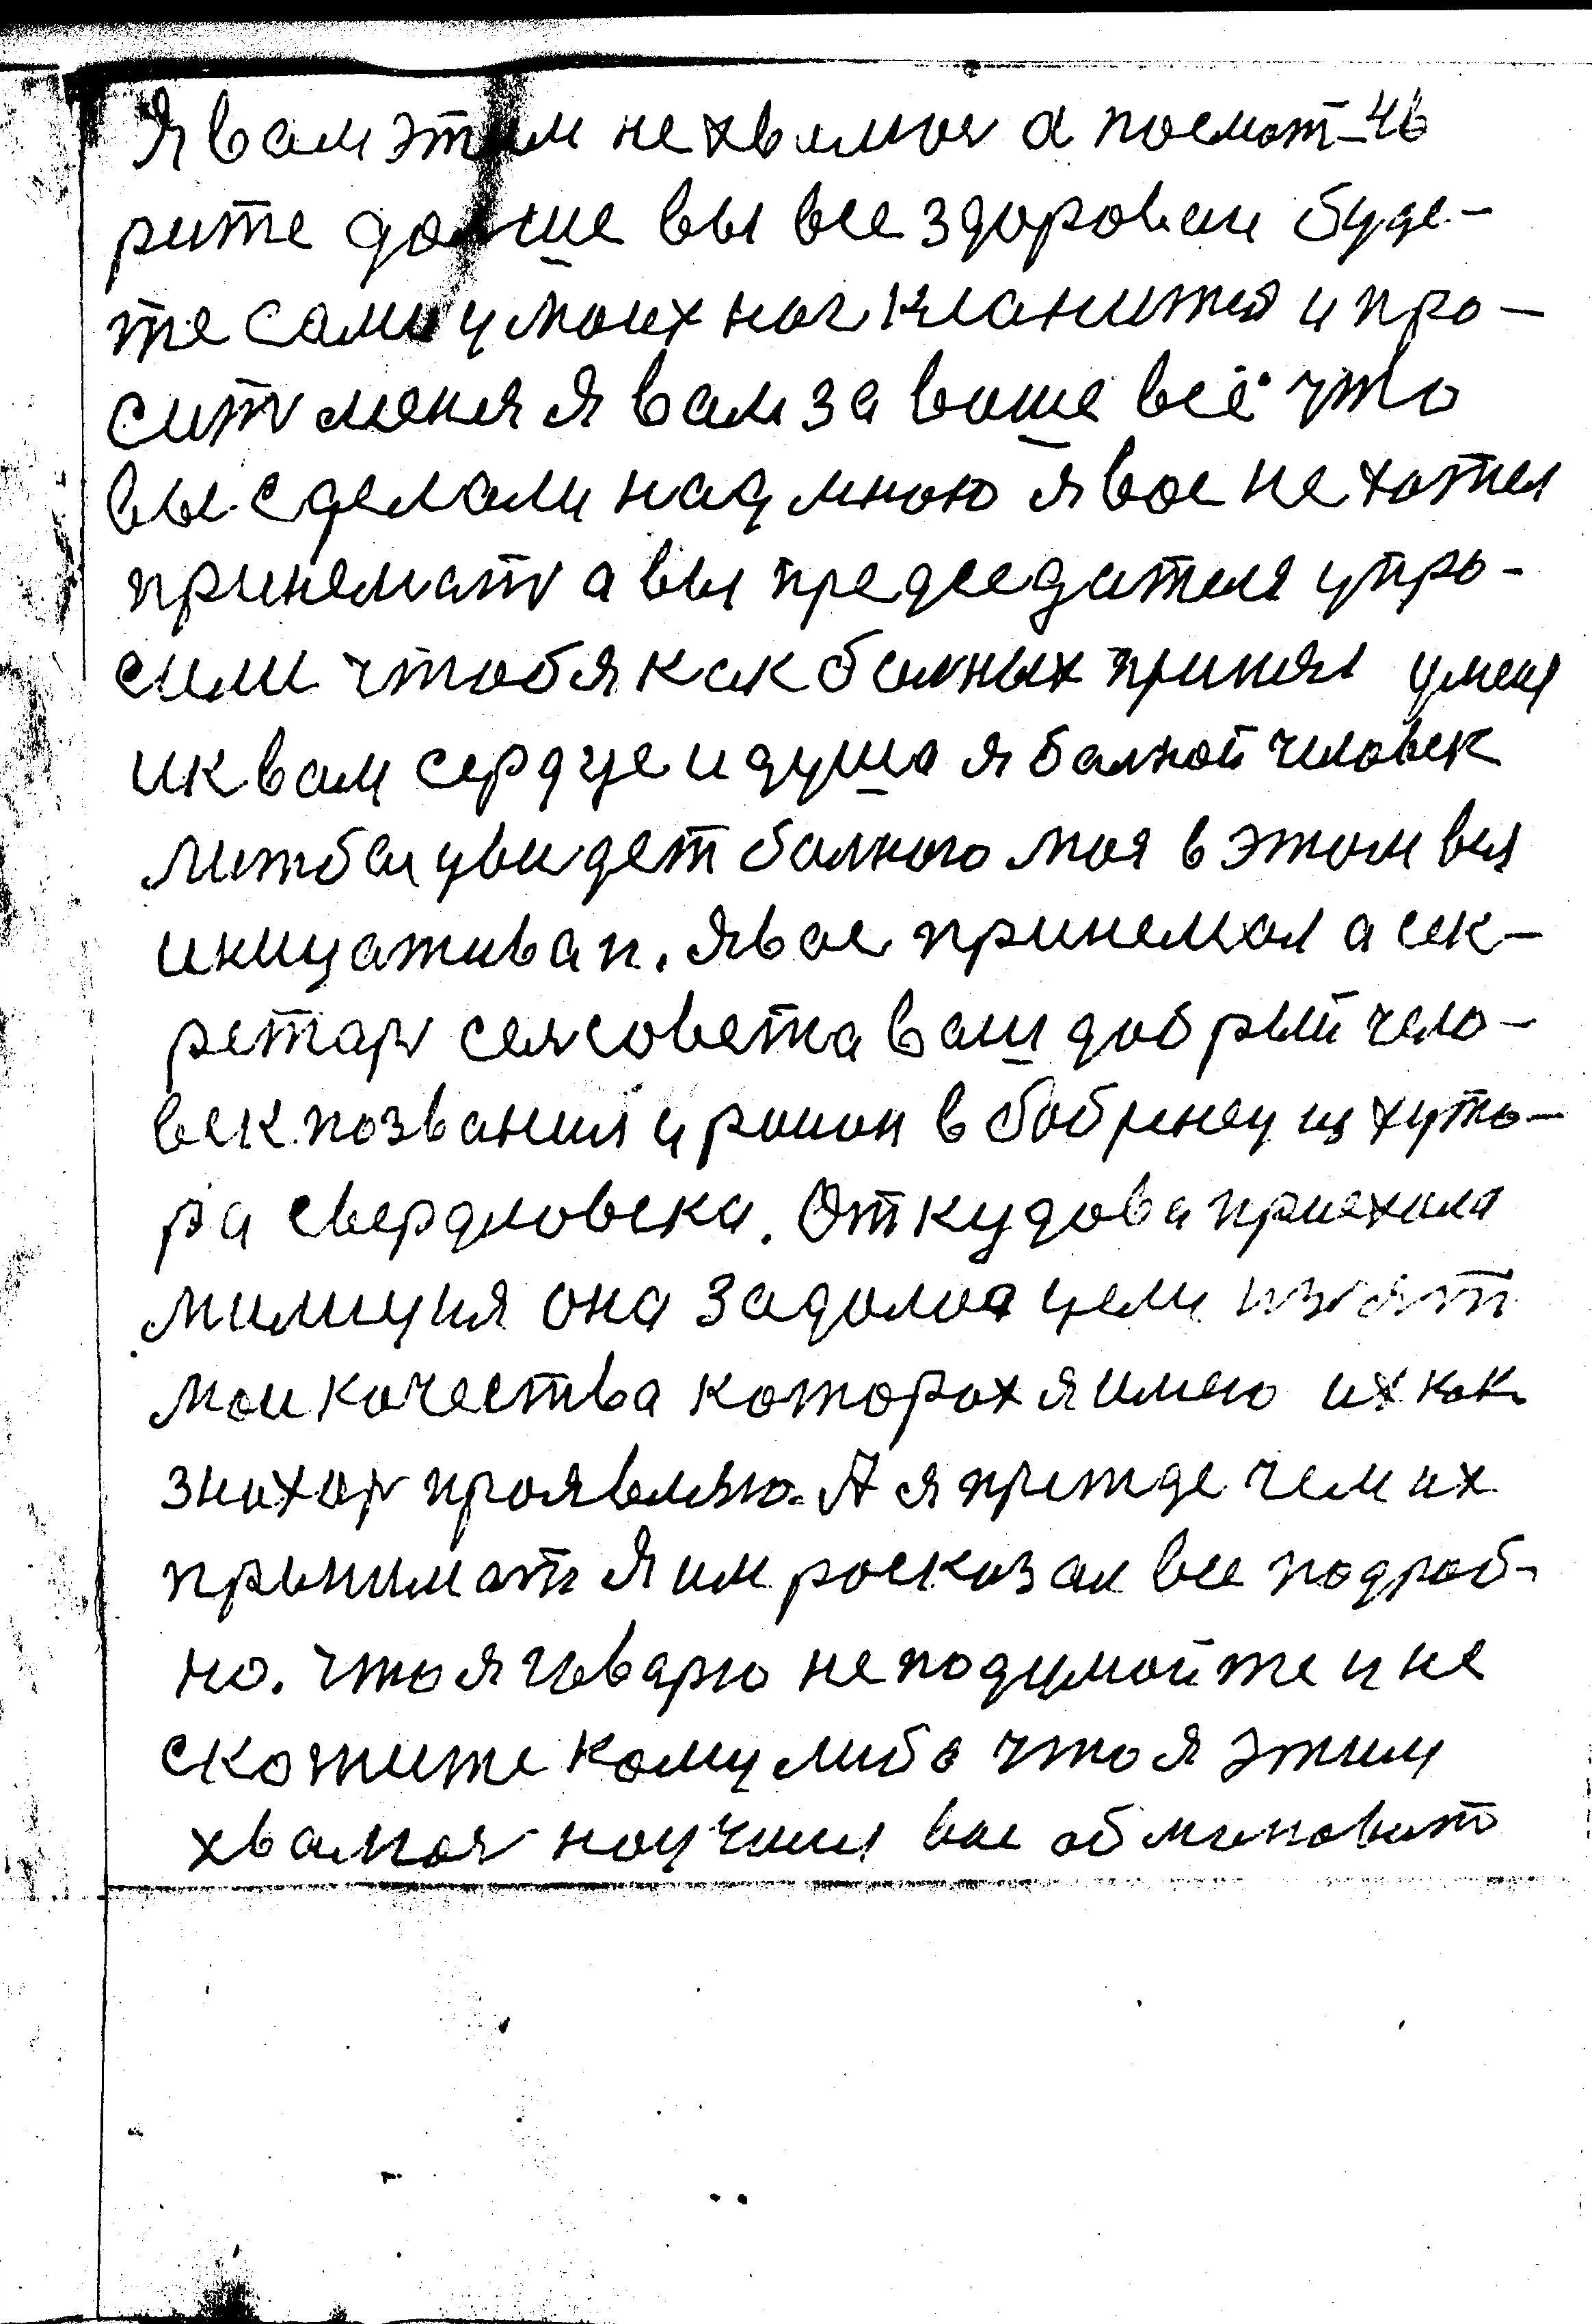 Я вам этим не хвалюся а посмот- 46
рите дальше вы все здоровеи буде-
те сами у моих ног кланитися и про-
сить меня я вам за ваше всё что
вы сделали над мною я вас не хотел
принемать а вы председателя упро-
сили чтоб я как балных принял у меня
и к вам сердце и душа я балной человек
лиж бы увидет балного моя в этом вся
инициатива п. я вас принемал а сек-
ретарь селсовета ваш добрый чело-
век позванил у район в бобринец из хуто-
ра свердловска. Откудова приехала
милиция она задалася цели изъят
мои качества которох я имею их как
знахарь проявляю. А я прежде чем их
принимат я им росказал все подроб-
но. что я говарю не подумойте и не
скажите кому либо что я этим
хвалюся научился вас обмановат